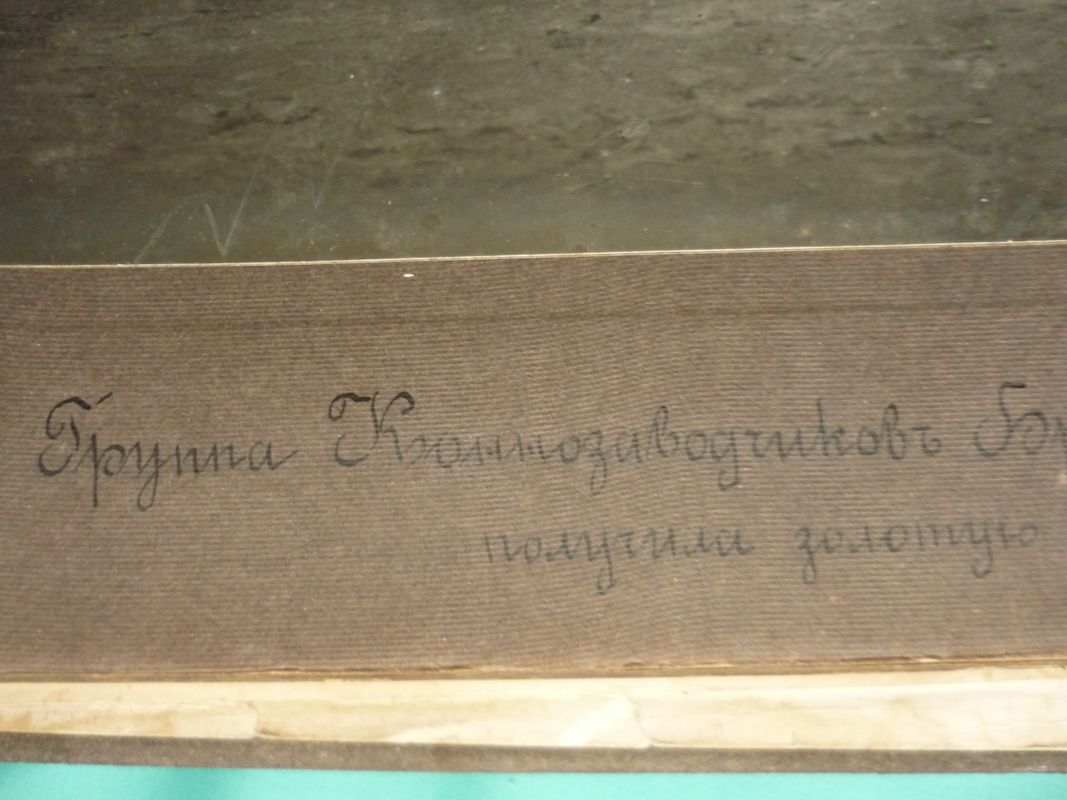 Группа Коннозаводчиковъ
получила золотую